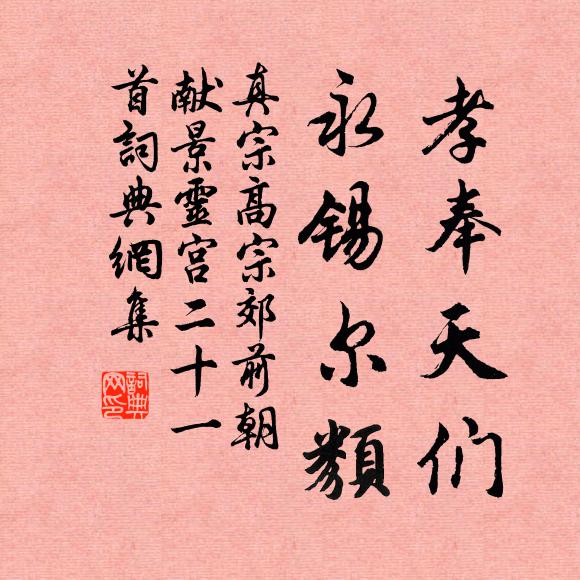 孝奉天们
永锡尔類
真宗高宗郊前朝
献景靈宫二十一
首詞典網集
詞典
网印